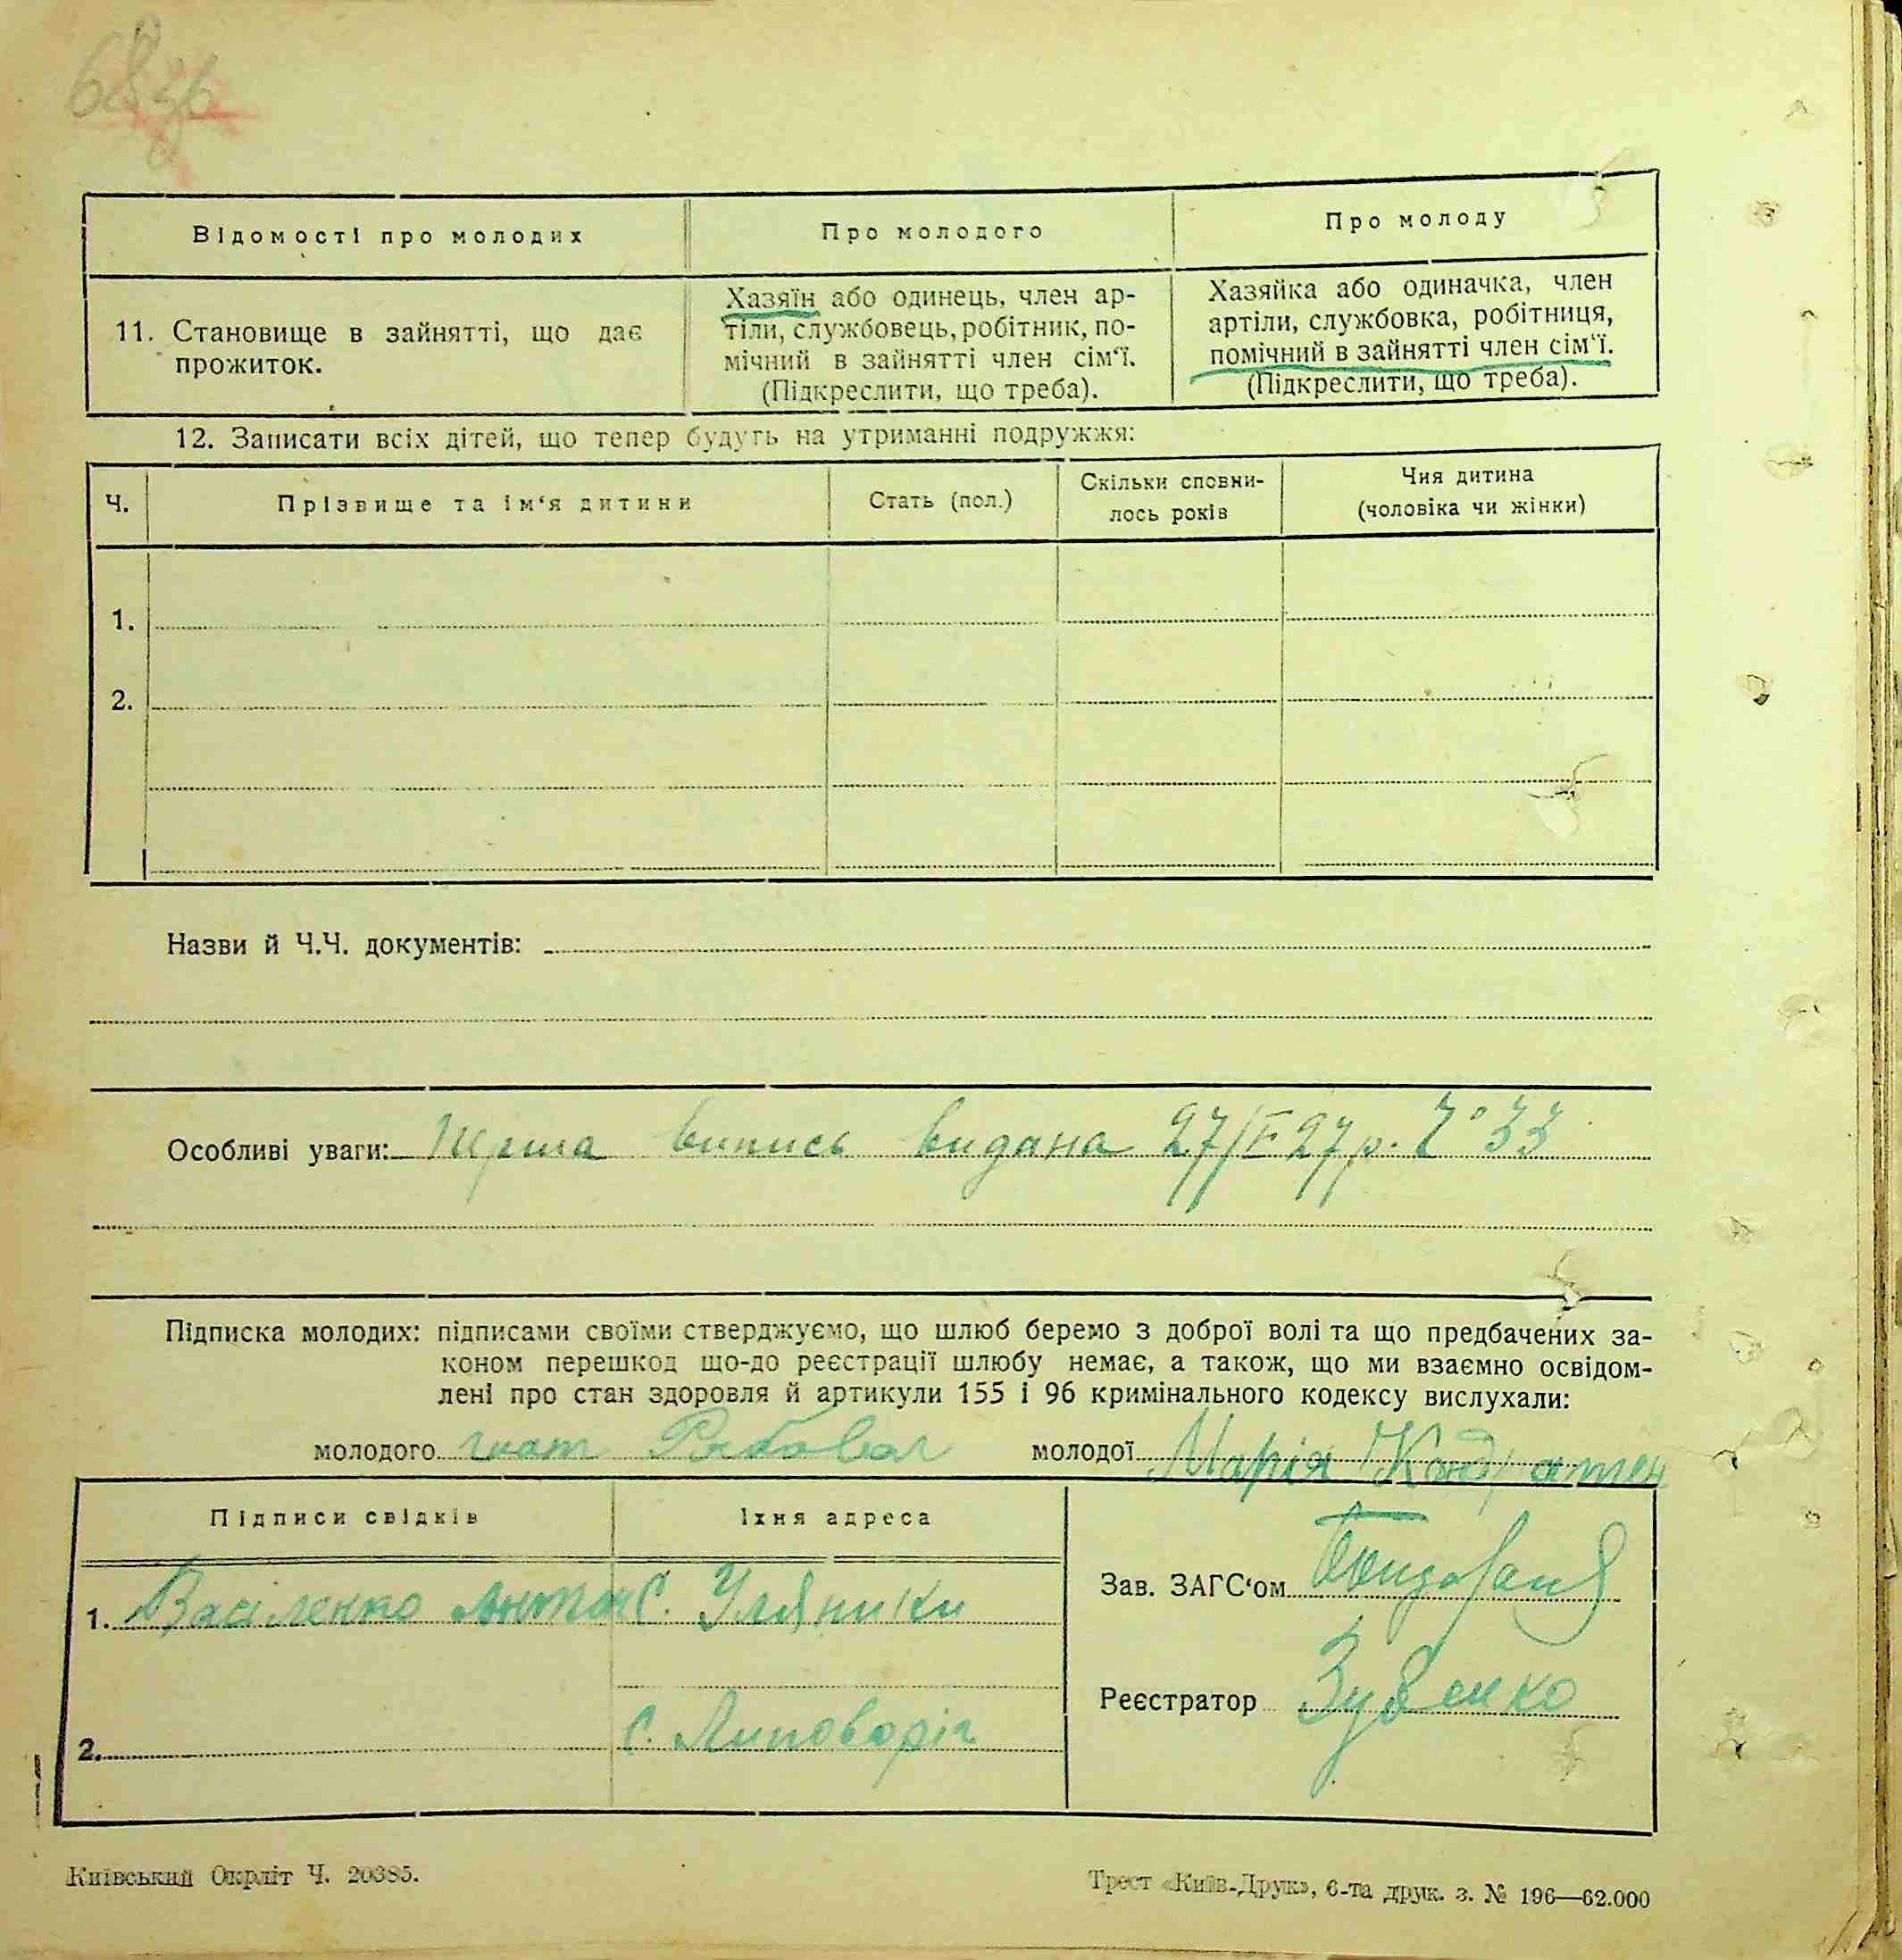 Відомості про молодих
Про молодого
Про молоду
11. Становище в зайнятті, що дає
прожиток.
Хазяїн або одинець, член ар-
тіли, службовець, робітник, по-
мічний в зайнятті член сім‘ї.
(Підкреслити, що треба).
Хазяйка або одиначка, член
артіли, службовка, робітниця,
помічний в зайнятті член сім‘ї.
(Підкреслити, що треба).
12. Записати всіх дітей, що тепер будуть на утриманні подружжя:
Ч.
Прізвище та ім‘я дитини
Стать (пол.)
Скільки сповни-
лось років
Чия дитина
(чоловіка чи жінки)
1.
2.
Назви й Ч.Ч. документів:
Особливі уваги: Перша випись видана 27/ 27 р. 33
Підписка молодих: підписами своїми стверджуємо, що шлюб беремо з доброї волі та що предбачених за-
коном перешкод що-до реєстрації шлюбу немає, а також, що ми взаємно освідом-
лені про стан здоровля й артикули 155 і 96 кримінального кодексу вислухали:
молодого гнат Рябовол молодої Марія Кондратен
Підписи свідків
Їхня адреса
1. Василенко Антон С. Уляники
2. С. Липоворіг
Зав. ЗАГС‘ом
Реєстратор Зубенко
Київський Окрліт Ч. 20385.
Трест «Київ-Друк», 6-та друк. з. № 196—62.000